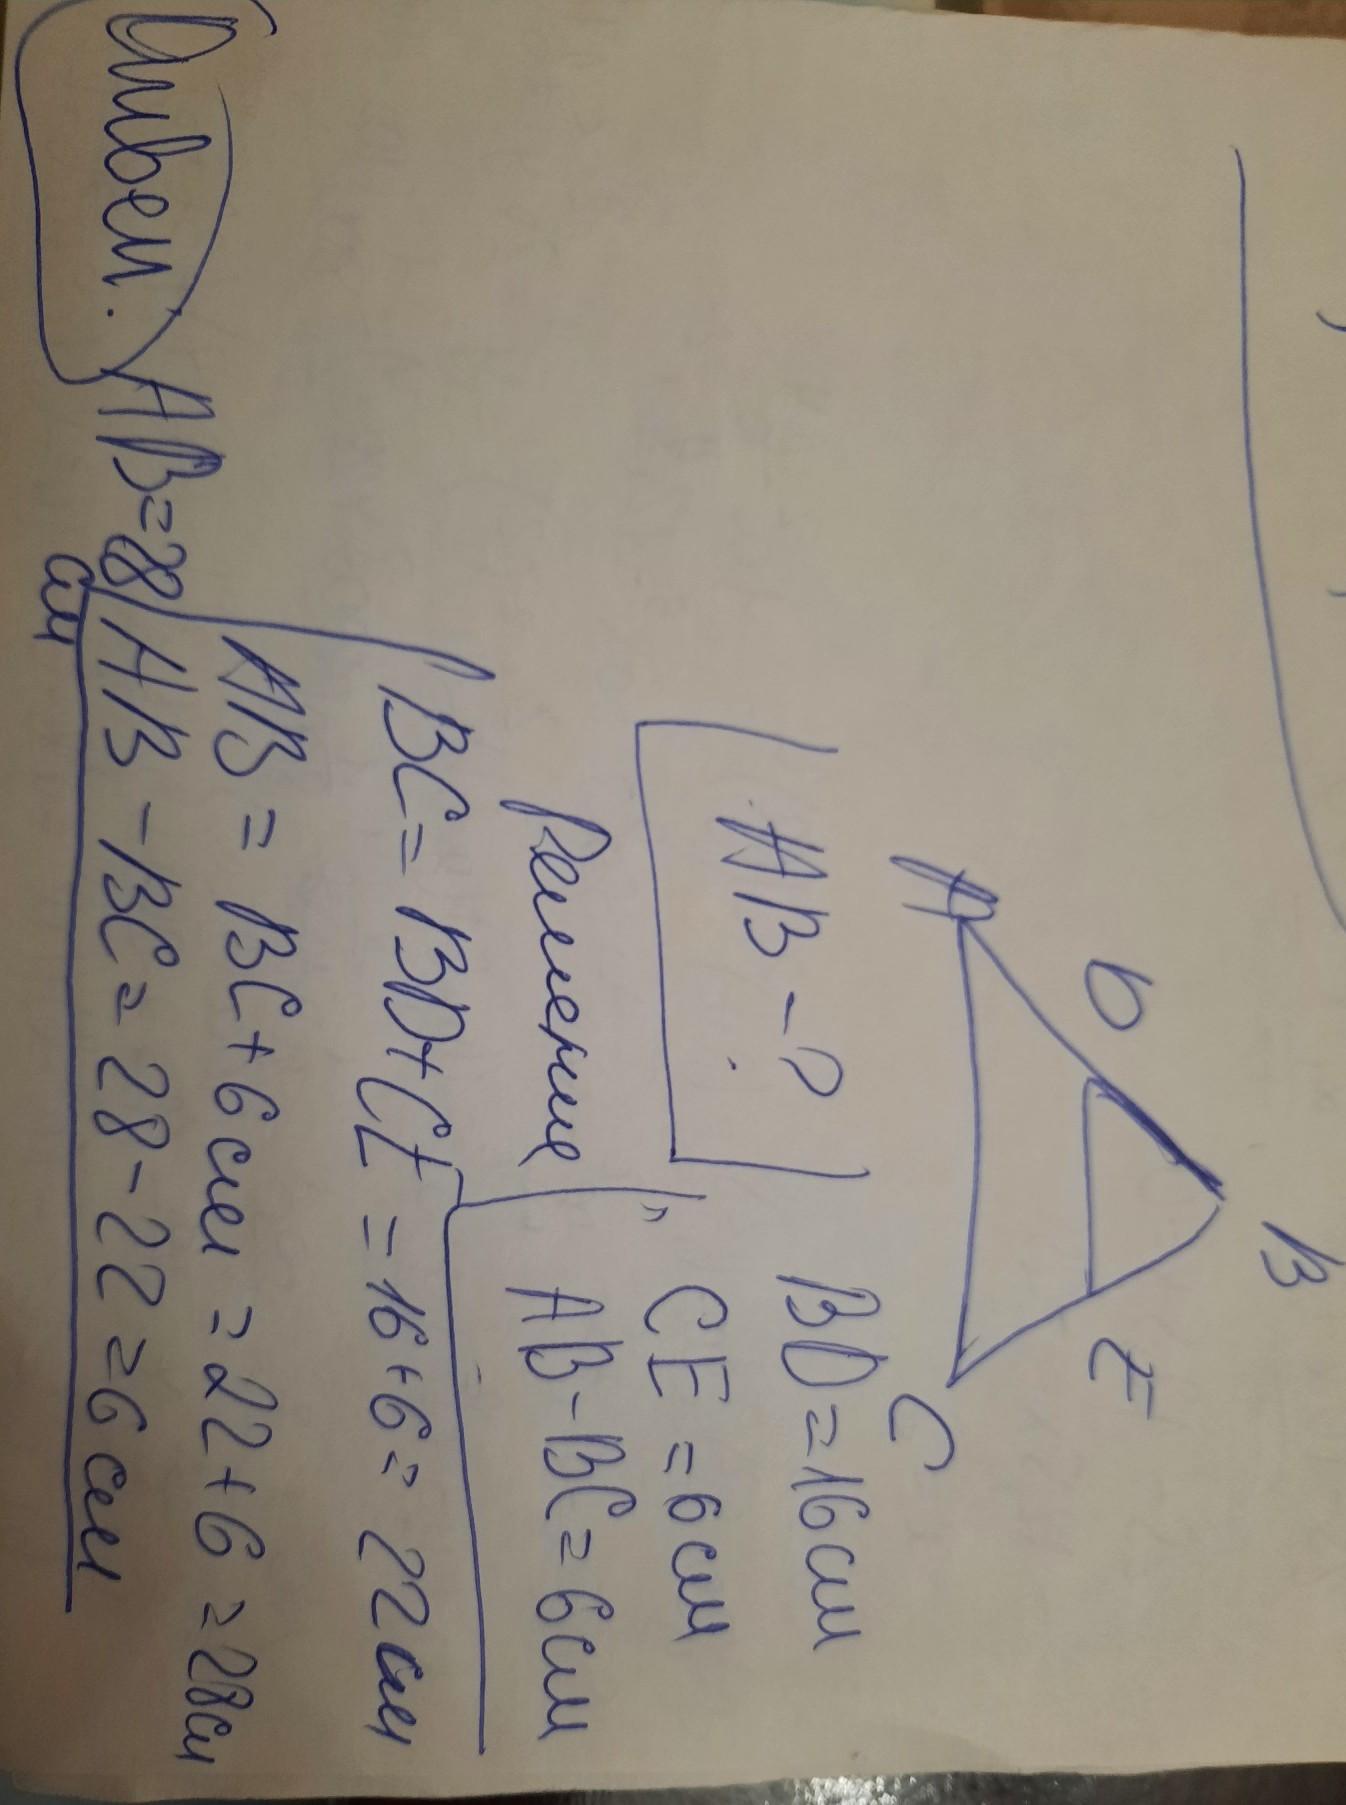 B
D
E
A
C
AB - ?
BD = 16 см
CE = 6 см
Решение
AB - BC = 6 см
BC = BD + CE = 16 + 6 = 22 см
AB = BC + 6 см = 22 + 6 = 28 см
AB - BC = 28 - 22 = 6 см
Ответ. AB = 28
см